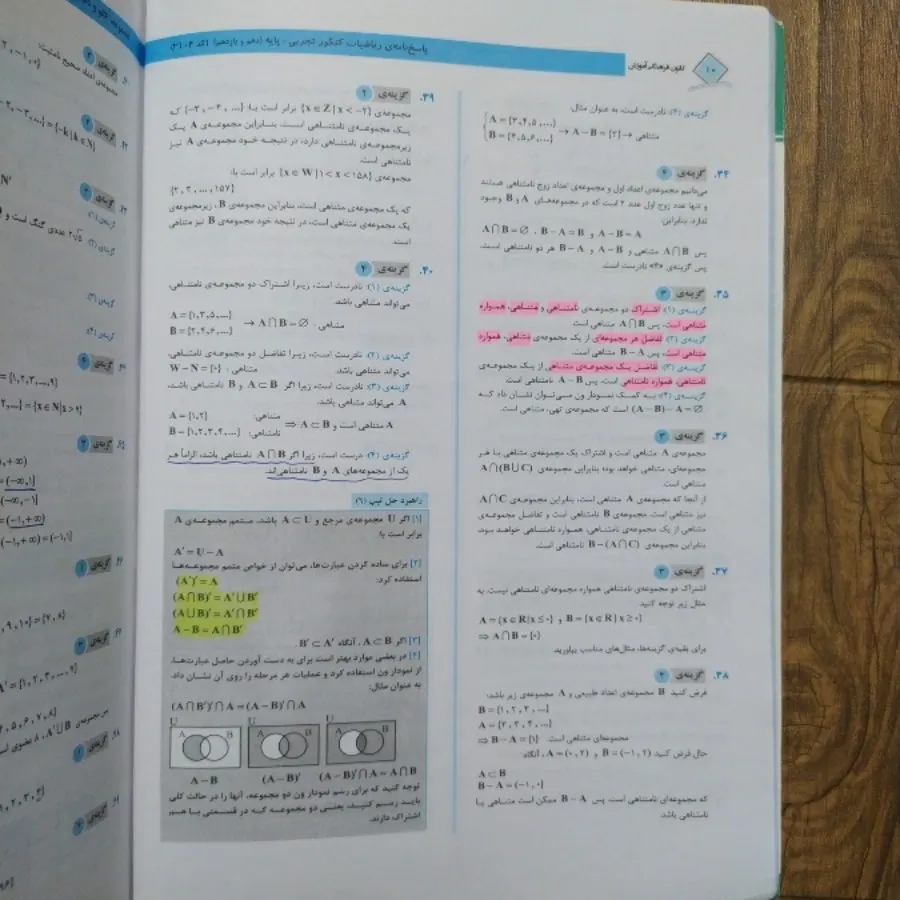 پاسخ‌نامه‌ی ریاضیات کنکور تجربی - پایه (دهم و یازدهم) (کد ۳۱۰۴)
کانون فرهنگی آموزش
۱۰
گزینه‌ی (۴): نادرست است، به عنوان مثال:
A = {۳,۴,۵,...}
B = {۴,۵,۶,...} → A − B = {۳} → متناهی
۳۴. گزینه‌ی ۴
می‌دانیم مجموعه‌ی اعداد اول و مجموعه‌ی اعداد زوج نامتناهی هستند
و تنها عدد زوج اول عدد ۲ است که در مجموعه‌های A و B وجود
ندارد. بنابراین:
A∩B = ∅ , B − A = B و A − B = A
پس A∩B متناهی و A − B و B − A هر دو نامتناهی است.
پس گزینه‌ی «۴» نادرست است.
۳۵. گزینه‌ی ۳
گزینه‌ی (۱): اشتراک دو مجموعه‌ی نامتناهی و متناهی، همواره
متناهی است، پس A∩B متناهی است.
گزینه‌ی (۲): تفاضل هر مجموعه‌ای از یک مجموعه‌ی متناهی، همواره
متناهی است، پس B − A متناهی است.
گزینه‌ی (۳): تفاضل یک مجموعه‌ی متناهی از یک مجموعه‌ی
نامتناهی، همواره نامتناهی است، پس A − B نامتناهی است.
گزینه‌ی (۴): به کمک نمودار ون می‌توان نشان داد که
(A − B) − A = ∅ است که مجموعه‌ی تهی، متناهی است.
۳۶. گزینه‌ی ۳
مجموعه‌ی A متناهی است و اشتراک یک مجموعه‌ی متناهی با هر
مجموعه‌ای، متناهی خواهد بود، بنابراین مجموعه‌ی A∩(B∪C)
متناهی است.
از آنجا که مجموعه‌ی A متناهی است، بنابراین مجموعه‌ی A∩C
نیز متناهی است. مجموعه‌ی B نامتناهی است و تفاضل مجموعه‌ی
متناهی از یک مجموعه‌ی نامتناهی، همواره نامتناهی خواهد بود،
بنابراین مجموعه‌ی B − (A∩C) نامتناهی است.
۳۷. گزینه‌ی ۳
اشتراک دو مجموعه‌ی نامتناهی همواره مجموعه‌ای نامتناهی نیست، به
مثال زیر توجه کنید:
A = {x∈R | x ≤ ۰} و B = {x∈R | x ≥ ۰}
⇒ A∩B = {۰}
برای بقیه‌ی گزینه‌ها، مثال‌های مناسب بیاورید.
۳۸. گزینه‌ی ۴
فرض کنید B مجموعه‌ی اعداد طبیعی و A مجموعه‌ی زیر باشد:
B = {۱,۲,۳,...}
A = {۲,۳,۴,...}
⇒ B − A = {۱} مجموعه‌ای متناهی است.
حال فرض کنید B = (−۱,۲) و A = (۰,۲)، آنگاه:
A ⊂ B
B − A = (−۱,۰]
که مجموعه‌ای نامتناهی است. پس B − A ممکن است متناهی یا
نامتناهی باشد.
۳۹. گزینه‌ی ۲
مجموعه‌ی {x∈Z | x < −۲} برابر است با: {−۳,−۴,...} که
یک مجموعه‌ی نامتناهی است. بنابراین مجموعه‌ی A یک
زیرمجموعه‌ی نامتناهی دارد، در نتیجه خود مجموعه‌ی A نیز
نامتناهی است.
مجموعه‌ی {x∈W | ۱ < x < ۱۵۸} برابر است با:
{۲,۳,...,۱۵۷}
که یک مجموعه‌ی متناهی است، بنابراین مجموعه‌ی B، زیرمجموعه‌ی
یک مجموعه‌ی متناهی است، در نتیجه خود مجموعه‌ی B نیز متناهی
است.
۴۰. گزینه‌ی ۴
گزینه‌ی (۱): نادرست است، زیرا اشتراک دو مجموعه‌ی نامتناهی،
می‌تواند متناهی باشد.
A = {۱,۳,۵,...}
B = {۲,۴,۶,...} → A∩B = ∅ : متناهی
گزینه‌ی (۲): نادرست است، زیرا تفاضل دو مجموعه‌ی نامتناهی،
می‌تواند متناهی باشد. متناهی: W − N = {۰}
گزینه‌ی (۳): نادرست است، زیرا اگر A ⊂ B و B نامتناهی باشد،
A می‌تواند متناهی باشد.
متناهی: A = {۱,۲}
نامتناهی: B = {۱,۲,۳,۴,...} ⇒ A ⊂ B و A متناهی است
گزینه‌ی (۴): درست است، زیرا اگر A∩B نامتناهی باشد، الزاماً هر
یک از مجموعه‌های A و B نامتناهی‌اند.
راهبرد حل تیپ (۶)
[۱] اگر U مجموعه‌ی مرجع و A ⊂ U باشد، متمم مجموعه‌ی A
برابر است با:
A′ = U − A
[۲] برای ساده کردن عبارت‌ها، می‌توان از خواص متمم مجموعه‌ها
استفاده کرد:
(A′)′ = A
(A∩B)′ = A′∪B′
(A∪B)′ = A′∩B′
A − B = A∩B′
[۳] اگر A ⊂ B، آنگاه B′ ⊂ A′.
[۴] در بعضی موارد بهتر است برای به دست آوردن حاصل عبارت‌ها،
از نمودار ون استفاده کرد و عملیات هر مرحله را روی آن نشان داد.
به عنوان مثال:
(A∩B′)′∩A = (A − B)′∩A
U A B U A B U A B
A − B (A − B)′ (A − B)′∩A = A∩B
توجه کنید که برای رسم نمودار ون دو مجموعه، آنها را در حالت کلی
باید رسم کنید، یعنی دو مجموعه که در قسمتی با هم
اشتراک دارند.